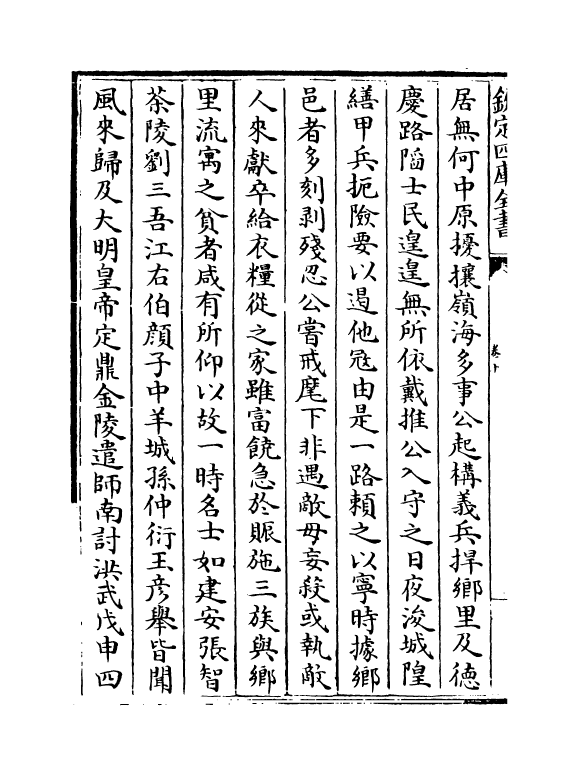 欽定四庫全書
卷十
居無何中原擾攘嶺海多事公起構義兵捍鄉里及德
慶路陷士民遑遑無所依戴推公入守之日夜浚城隍
繕甲兵扼險要以遏他冦由是一路頼之以寧時據鄉
邑者多刻剥殘忍公嘗戒麾下非遇敵毋妄殺或執敵
人來獻卒給衣糧從之家雖富饒急於賑施三族與鄉
里流寓之貧者咸有所仰以故一時名士如建安張智
茶陵劉三吾江右伯顔子中羊城孫仲衍王彦舉皆聞
風來歸及大明皇帝定鼎金陵遣師南討洪武戊申四